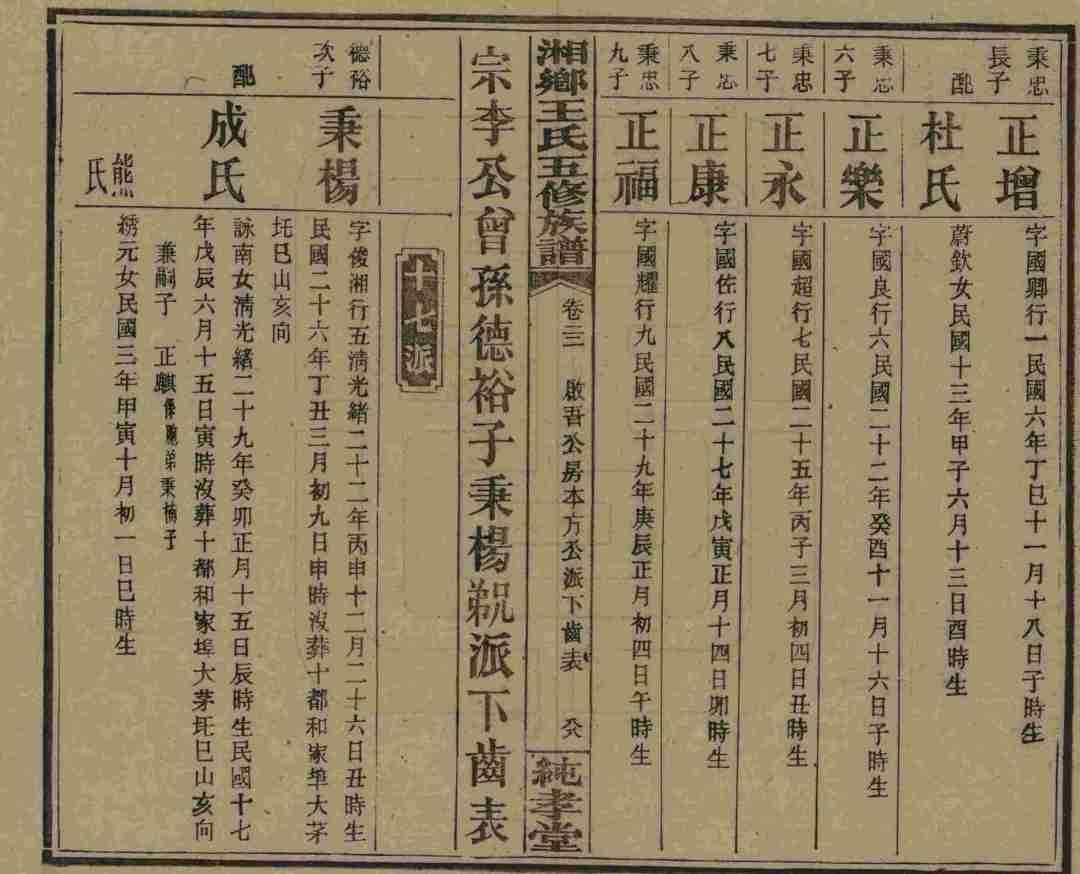 秉忠長子
正增
字國卿行一民國六年丁巳十一月十八日子時生
配
杜氏
蔚欽女民國十三年甲子六月十三日酉時生
秉忠六子
正樂
字國良行六民國二十二年癸酉十一月十六日子時生
秉忠七子
正永
字國超行七民國二十五年丙子三月初四日丑時生
秉忠八子
正康
字國佐行八民國二十七年戊寅正月十四日卯時生
秉忠九子
正福
字國耀行九民國二十九年庚辰正月初四日午時生
湘鄉王氏五修族譜
卷三 啟吾公房本方公派下齒表
純孝堂
宗李公曾孫德裕子秉楊派下齒表
十七派
德裕次子
秉楊
字俊湘行五淸光緒二十二年丙申十二月二十六日丑時生
民國二十六年丁丑三月初九日申時沒葬十都和家埠大茅
圫巳山亥向
配
成氏
詠南女淸光緒二十九年癸卯正月十五日辰時生民國十七
年戊辰六月十五日寅時沒葬十都和家埠大茅圫巳山亥向
兼嗣子 正麒係胞弟秉楠子
熊氏
綉元女民國三年甲寅十月初一日巳時生